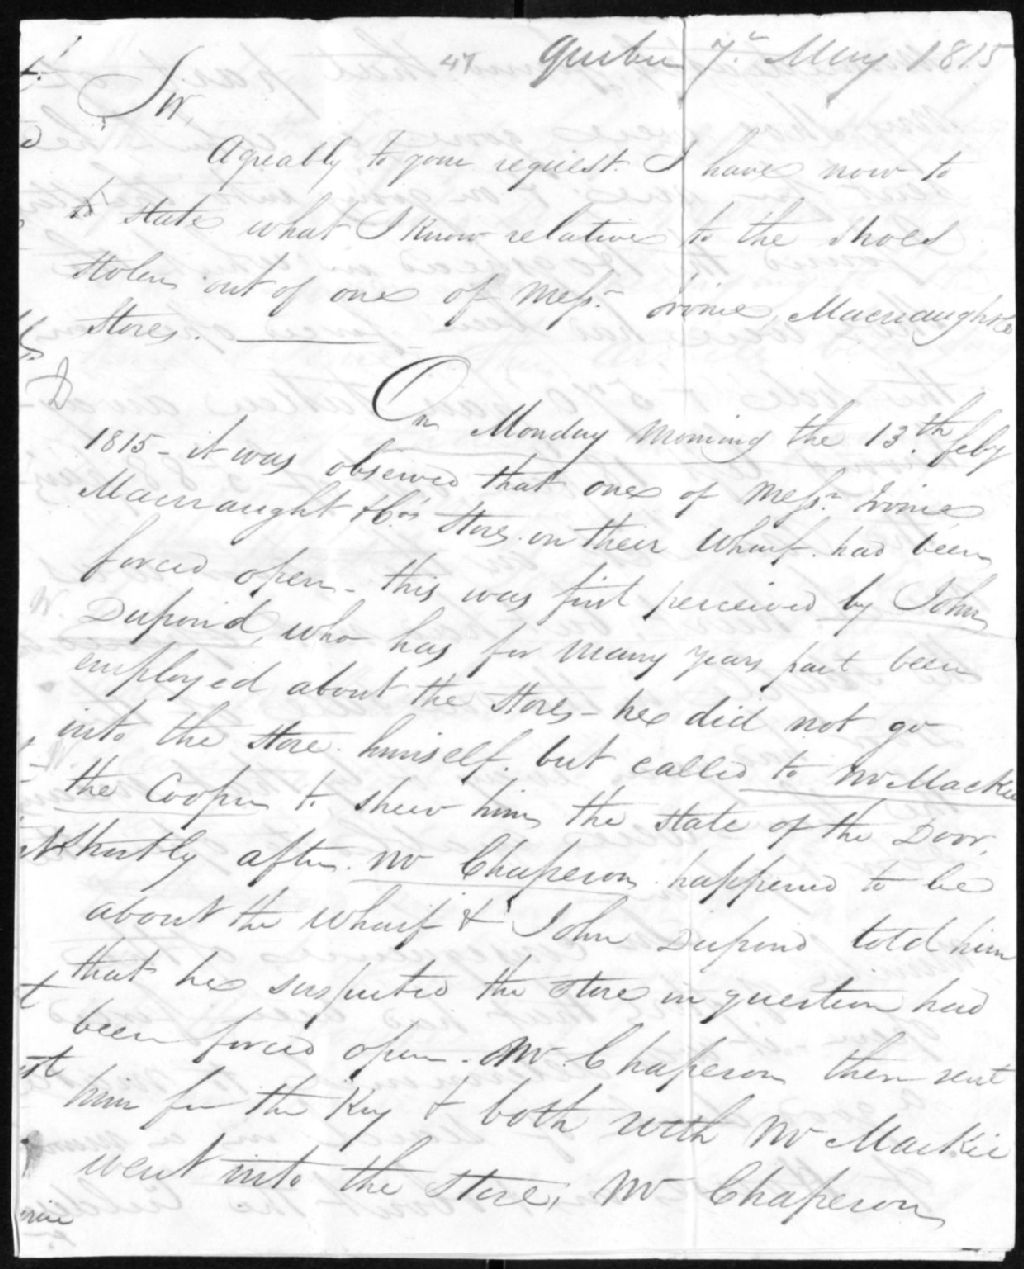 47 Quebec 7th May 1815
Sir,
Agreably to your request I have now to
state what I know relative to the shoes
stolen out of one of Messrs Irvine, Macnaught & Co
Stores.
On Monday morning the 13th feby
1815 - it was observed that one of Messrs Irvine
Macnaught & Co's Stores on their Wharf had been
forced open - this was first perceived by John
Dupond, who has for many years past been
employed about the Stores - he did not go
into the store himself, but called to Mr MacKie
the Cooper to shew him the state of the Door,
shortly after Mr Chaperon happened to be
about the wharf & John Dupond told him
that he suspected the store in question had
been forced open. Mr Chaperon then sent
him for the Key & both with Mr MacKie
went into the store, Mr Chaperon